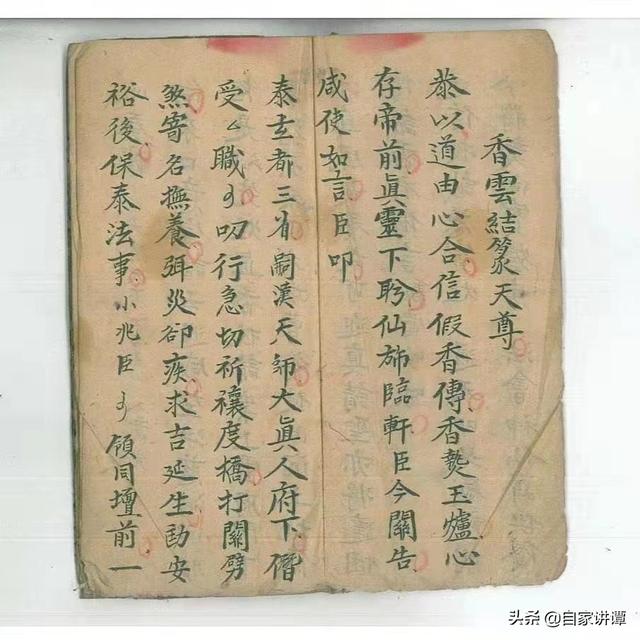 香雲結篆天尊
恭以道由心合信假香傳香爇玉爐心
存帝前眞靈下盼仙斾臨軒臣今關告
咸使如言臣叩
泰玄都三省嗣漢天師大眞人府下僭
受職叨行急切祈禳度橋打關劈
煞寄名撫養弭災卻疾求吉延生安
裕後保泰法事小兆臣領同壇前一
头条 @自家讲谭